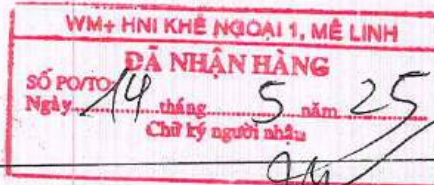 WM+ HNI KHÊ NGOẠI 1, MÊ LINH
ĐÃ NHẬN HÀNG
SỐ PO/TO:
Ngày 14 tháng 5 năm 25
Chữ ký người nhận